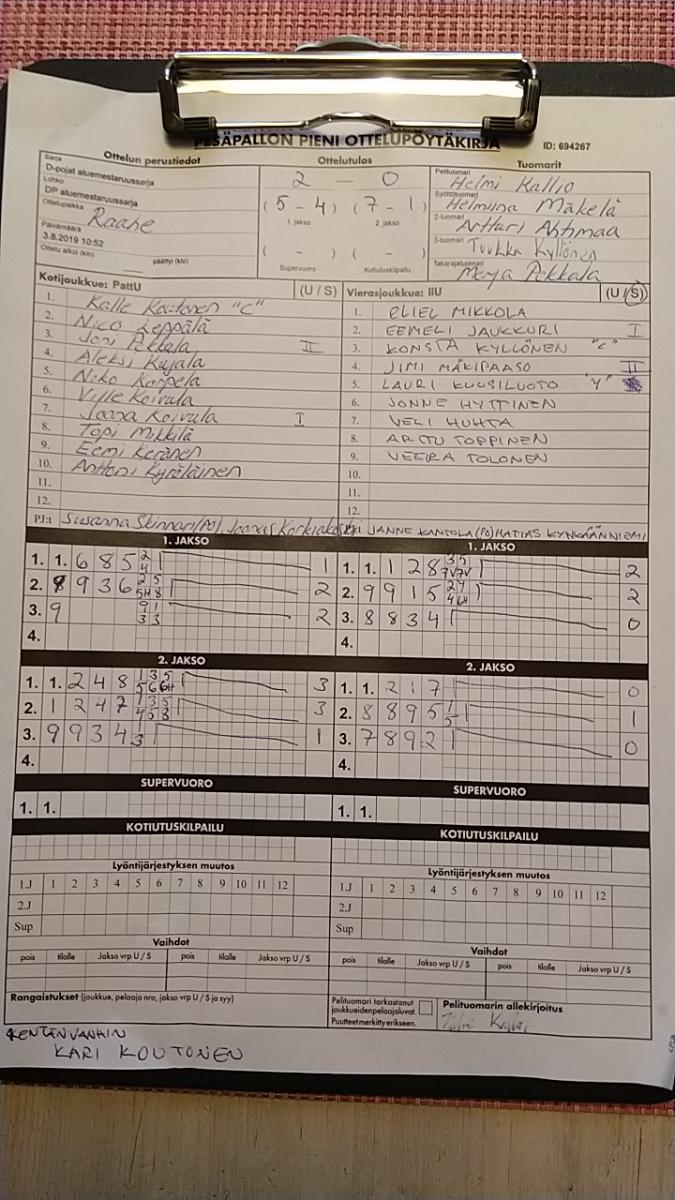 PESÄPALLON PIENI OTTELUPÖYTÄKIRJA
ID: 694267
Ottelun perustiedot
Ottelutulos
Tuomarit
Sarja
D-pojat aluemestaruussarja
Lohko
DP aluemestaruussarja
Ottelupaikka Raahe
Päivämäärä
3.8.2019 10:52
Ottelu alkoi (klo) päättyi (klo)
2 – 0
(5-4) (7-1)
1. jakso 2. jakso
( - ) ( - )
Supervuoro Kotiutuskilpailu
Pelituomari Helmi Kallio
Syöttötuomari Helmiina Mäkelä
2-tuomari Artturi Ahtimaa
3-tuomari Tuukka Kyllönen
Takarajatuomari Merja Pekkala
Kotijoukkue: PattU (U / S)
1. Kalle Kaitonen "C"
2. Nico Leppälä
3. Joni Pekkala II
4. Aleksi Kujala
5. Niko Korpela
6. Ville Koivula
7. Joona Koivula I
8. Topi Mikkilä
9. Eemi Keränen
10. Anttoni Kyröläinen
11.
12.
Vierasjoukkue: IIU (U / S)
1. ELIEL MIKKOLA
2. EEMELI JAUKKURI I
3. KONSTA KYLLÖNEN "C"
4. JIMI MÄKIPAASO II
5. LAURI KUUSILUOTO "Y"
6. JONNE HYTTINEN
7. VELI HUHTA
8. ARTTU TOPPINEN
9. VEERA TOLONEN
10.
11.
12.
PJ:t Susanna Skinnari (PJ), Joonas
JANNE KANTOLA (PJ) MATIAS KYNKÄÄNNIEMI
1. JAKSO
1. 1. 6 8 5 2 4 1
2. 8 9 3 6 2 5 5H 8 2
3. 9 9 1 3 3 2
4.
1. JAKSO
1. 1. 1 2 8 3 5 7V 7V 2
2. 9 9 1 5 2
3. 8 8 3 4 0
4.
2. JAKSO
1. 1. 2 4 8 1 3 5 5 6 6H 3
2. 1 2 4 7 1 3 5 4 5 8 3
3. 9 9 3 4 3 1
4.
2. JAKSO
1. 1. 2 1 7 0
2. 8 8 9 5 1 5 1
3. 7 8 9 2 0
4.
SUPERVUORO
1. 1.
SUPERVUORO
1. 1.
KOTIUTUSKILPAILU
KOTIUTUSKILPAILU
Lyöntijärjestyksen muutos
1.J 1 2 3 4 5 6 7 8 9 10 11 12
2.J
Sup
Lyöntijärjestyksen muutos
1.J 1 2 3 4 5 6 7 8 9 10 11 12
2.J
Sup
Vaihdot
pois tilalle Jakso vrp U / S pois tilalle Jakso vrp U / S
Vaihdot
pois tilalle Jakso vrp U / S pois tilalle Jakso vrp U / S
Rangaistukset (joukkue, pelaaja nro, jakso vrp U / S ja syy)
Pelituomari tarkastanut
joukkueiden pelaajaluvat.
Puutteet merkitty erikseen.
Pelituomarin allekirjoitus
KENTÄNVANHIN
KARI KOUTONEN